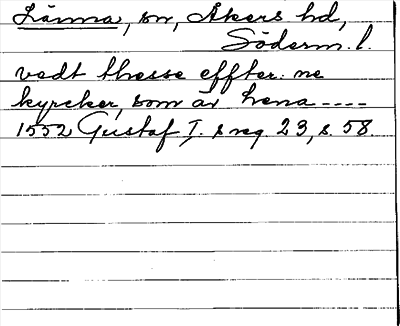 Länna, sn, Åkers hd,
Söderm. l.
vedt thesse effter: ne
kyrcker, som är Lena ----
1552 Gustaf I. s reg. 23, s. 58.